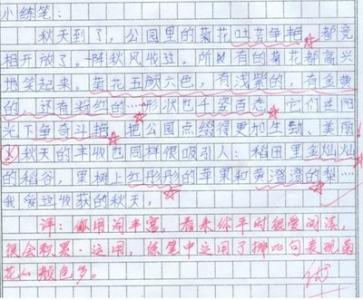 小练笔：
秋天到了，公园里的菊花吐芳争艳，都竞
相开放了。一阵秋风吹过，所有的菊花都高兴
地笑起来。菊花五颜六色，有浅紫的，有金黄
的，还有粉红的……形状也千姿百态，它们在阳
光下争奇斗艳，把公园点缀得更加生动、美丽
秋天的丰收也同样很吸引人：稻田里金灿灿
的稻谷，果树上红彤彤的苹果和黄澄澄的梨……
我爱这收获的秋天。
评：你用词丰富，看来你平时很爱阅读，
很会积累、运用，练笔中运用了排比句表现菊
花的颜色多。